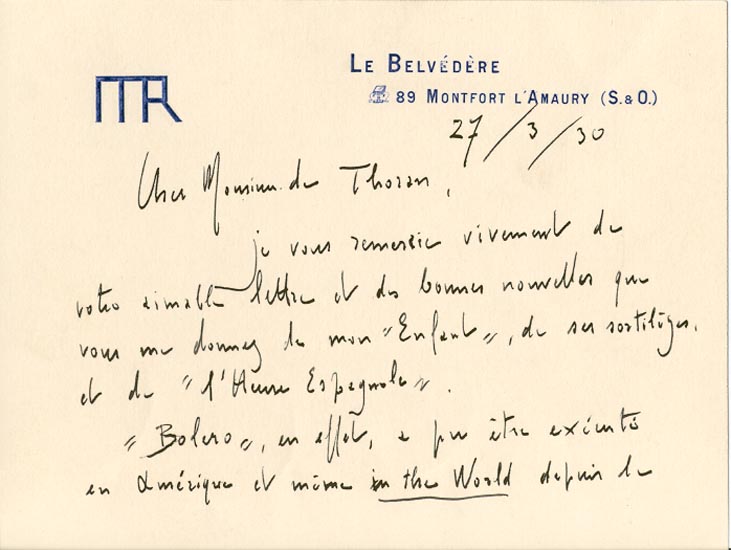 MR
LE BELVÉDÈRE
89 MONTFORT L'AMAURY (S.&O.)
27/3/30
Cher Monsieur de Thoran,
je vous remercie vivement de
votre aimable lettre et des bonnes nouvelles que
vous me donnez de mon "Enfant", de ses sortilèges,
et de "l'Heure Espagnole".
"Bolero", en effet, a pu être exécuté
en Amérique et même in the World depuis le